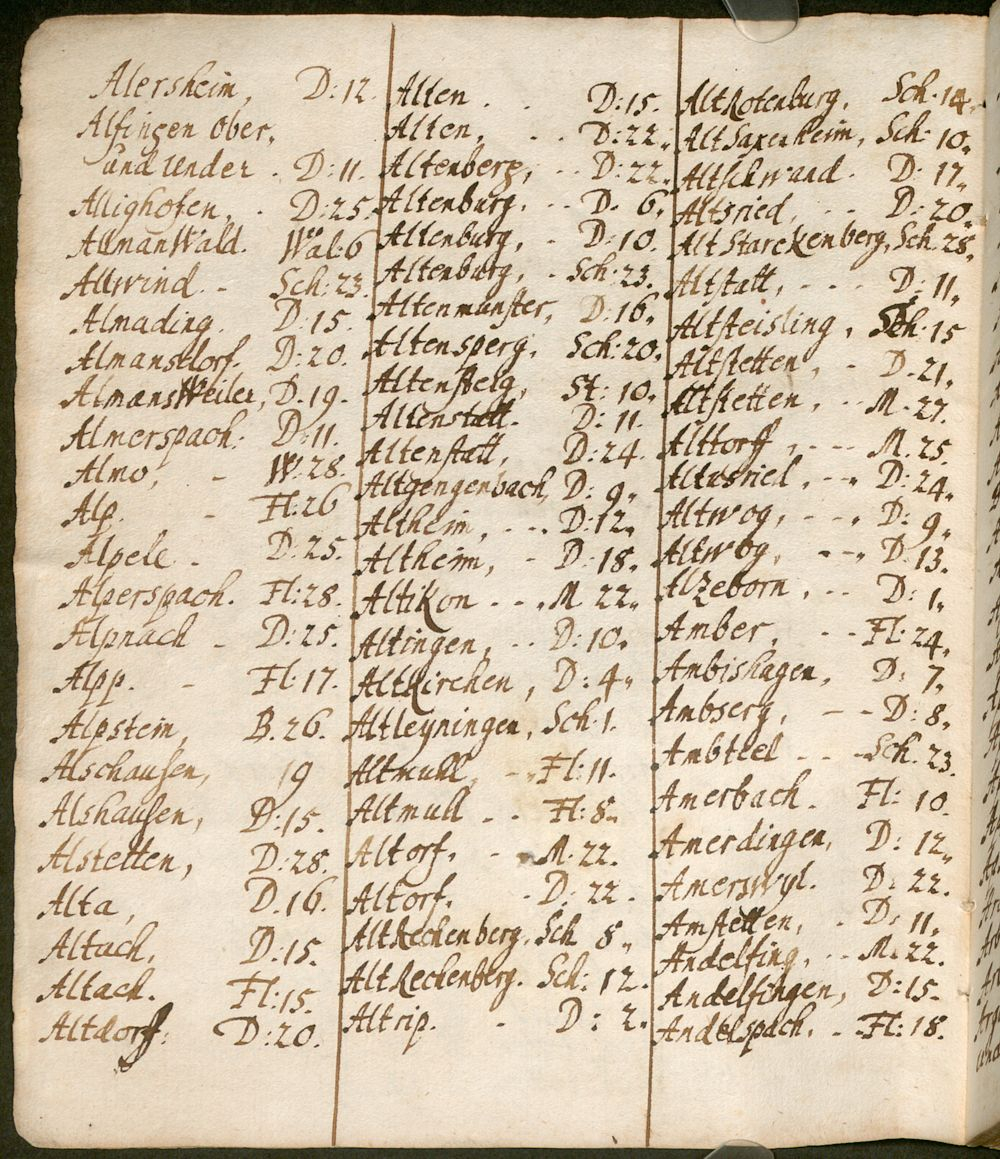 Alersheim, D: 12.
Alfingen Ober,
und Under . D: 11.
Allighofen, . D: 25.
AllmanWald. Wäl: 6
Allwind. - Sch: 23.
Almading. D: 15.
Almansdorf. D: 20.
AlmansWeiler, D. 19.
Almerspach: D: 11.
Almo, - W: 28.
Alp. - Fl: 26
Alpele - D: 25.
Alperspach. Fl: 28.
Alpnach - D: 25.
Alpp. - Fl: 17.
Alpstein, B. 26.
Alschausen, 19
Alshausen, D: 15.
Alstetten, D: 28.
Alta, D. 16.
Altach, D: 15.
Altach. Fl: 15.
Altdorff: D: 20.
Alten . . D: 15.
Alten, . . D: 22.
Altenberg, . . D: 22.
Altenburg. . . D. 6.
Altenburg, . D: 10.
Altenburg, . Sch: 23.
Altenmünster, D: 16.
Altensperg. Sch: 20.
Altensteig, St: 10.
Altenstatt. D: 11.
Altenstatt, D: 24.
Altgengenbach, D: 9.
Altheim, . . . D: 12.
Altheim, - D: 18.
Altikon . . . M. 22.
Altingen, . . D: 10.
AltKirchen, D: 4.
Altleyningen, Sch. 1.
Altmuhl, . . Fl: 11.
Altmull . . Fl: 8.
Altorf. - M. 22.
Altorf. . D: 22.
AltRechenberg. Sch 8.
AltRechenberg. Sch: 12.
Altrip. . D: 2.
AltRotenburg. Sch. 14.
AltSaxenheim, Sch: 10.
Altschwand. D: 17.
Altsried, . . D: 20.
AltStarckenberg, Sch. 28.
Altstatt, . . . D: 11.
Altsteisling, Sch: 15
Altstetten, . D. 21.
Altstetten, . . M. 27.
Alttorff, . - - M. 25.
Altusried, . . D: 24.
Altwog, . . . D: 9.
Altwog, . . D. 13.
Alzeborn, . . D: 1.
Amber, . - Fl: 24.
Ambishagen, D: 7.
Ambserg, - - D: 8.
Ambteel . . -Sch. 23.
Amerbach. Fl: 10.
Amerdingen, D: 12.
Amerswyl. D: 22.
Amstetten, . D: 11.
Andelfing, . . M. 22.
Andelfingen, D: 15.
Andelspach. - Fl: 18.